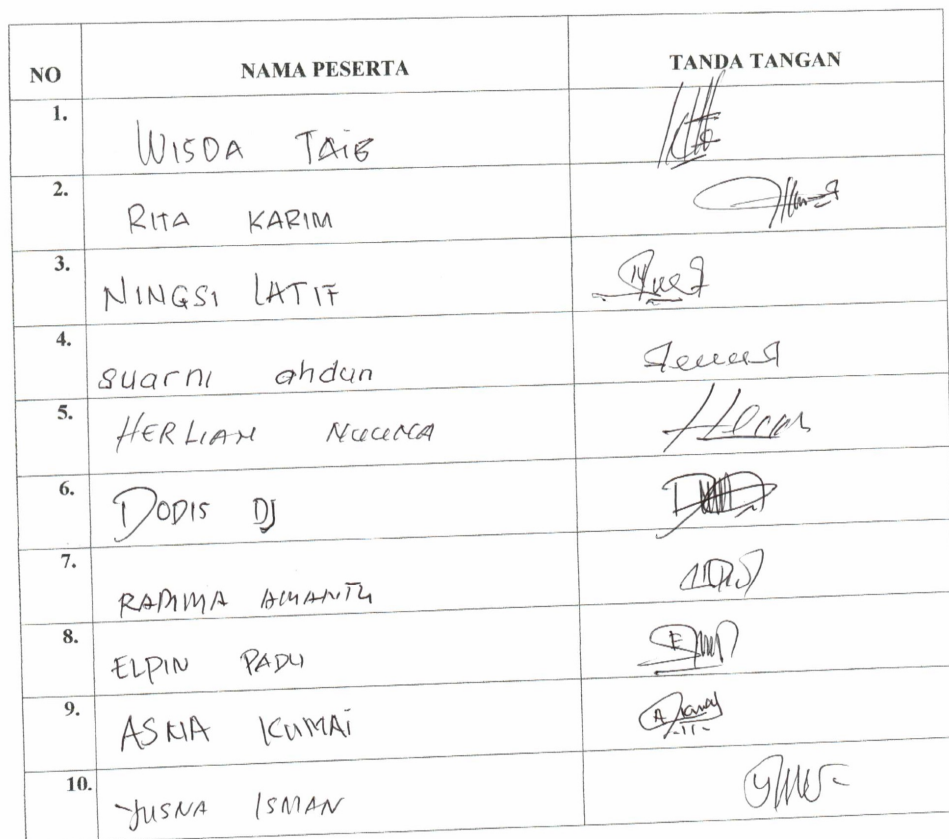 NO NAMA PESERTA TANDA TANGAN
1. WISDA TAIB
2. RITA KARIM
3. NINGSI LATIF
4. suarni ahdun
5. HERLIAN
6. DODIS DJ
7. RADIMA AMANTU
8. ELPIN PADU
9. ASNA KUMAI
10. YUSNA ISMAN